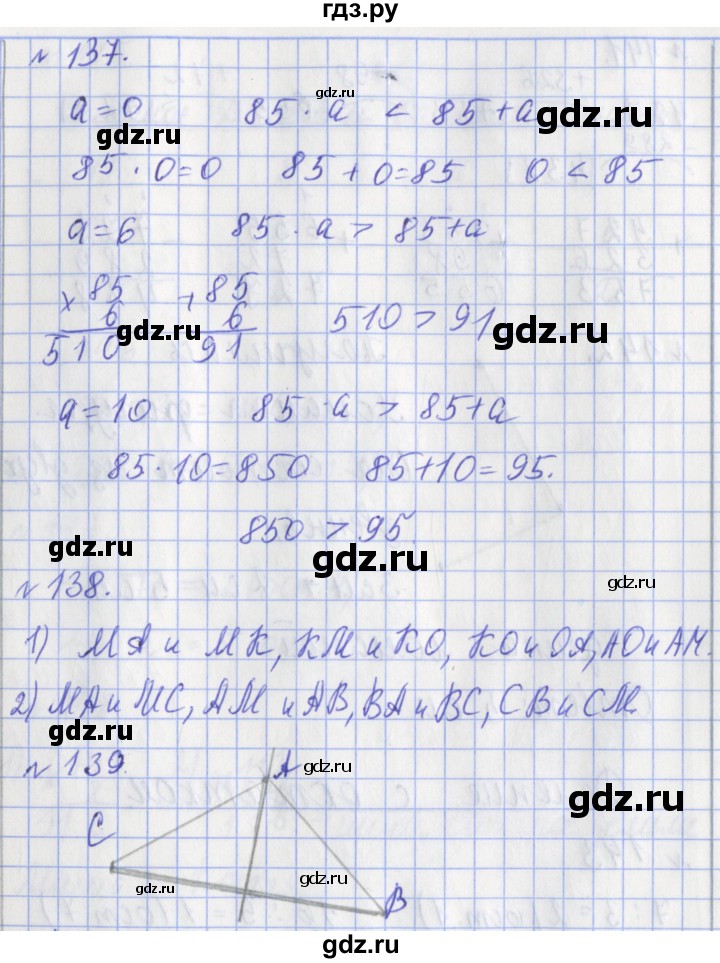 гдз.ру
№ 137.
gdz.ru
a=0 85 · a < 85 + a
gdz.ru
gdz.ru
85 · 0=0 85 + 0=85 0 < 85
a=6 85 · a > 85+a
× 85 + 85
6 6 510 > 91
510 91
gdz.ru
gdz.ru
a=10 85 · a > 85+a
85 · 10=850 85+10=95.
850 > 95.
gdz.ru
gdz.ru
№ 138.
gdz.ru
1) МА и МК, КМ и КО, КО и ОА, АО и АМ.
2) МА и МС, АМ и АВ, ВА и ВС, СВ и СМ.
gdz.ru
№ 139.
А
gdz.ru
gdz.ru
С
gdz.ru
gdz.ru
В
gdz.ru